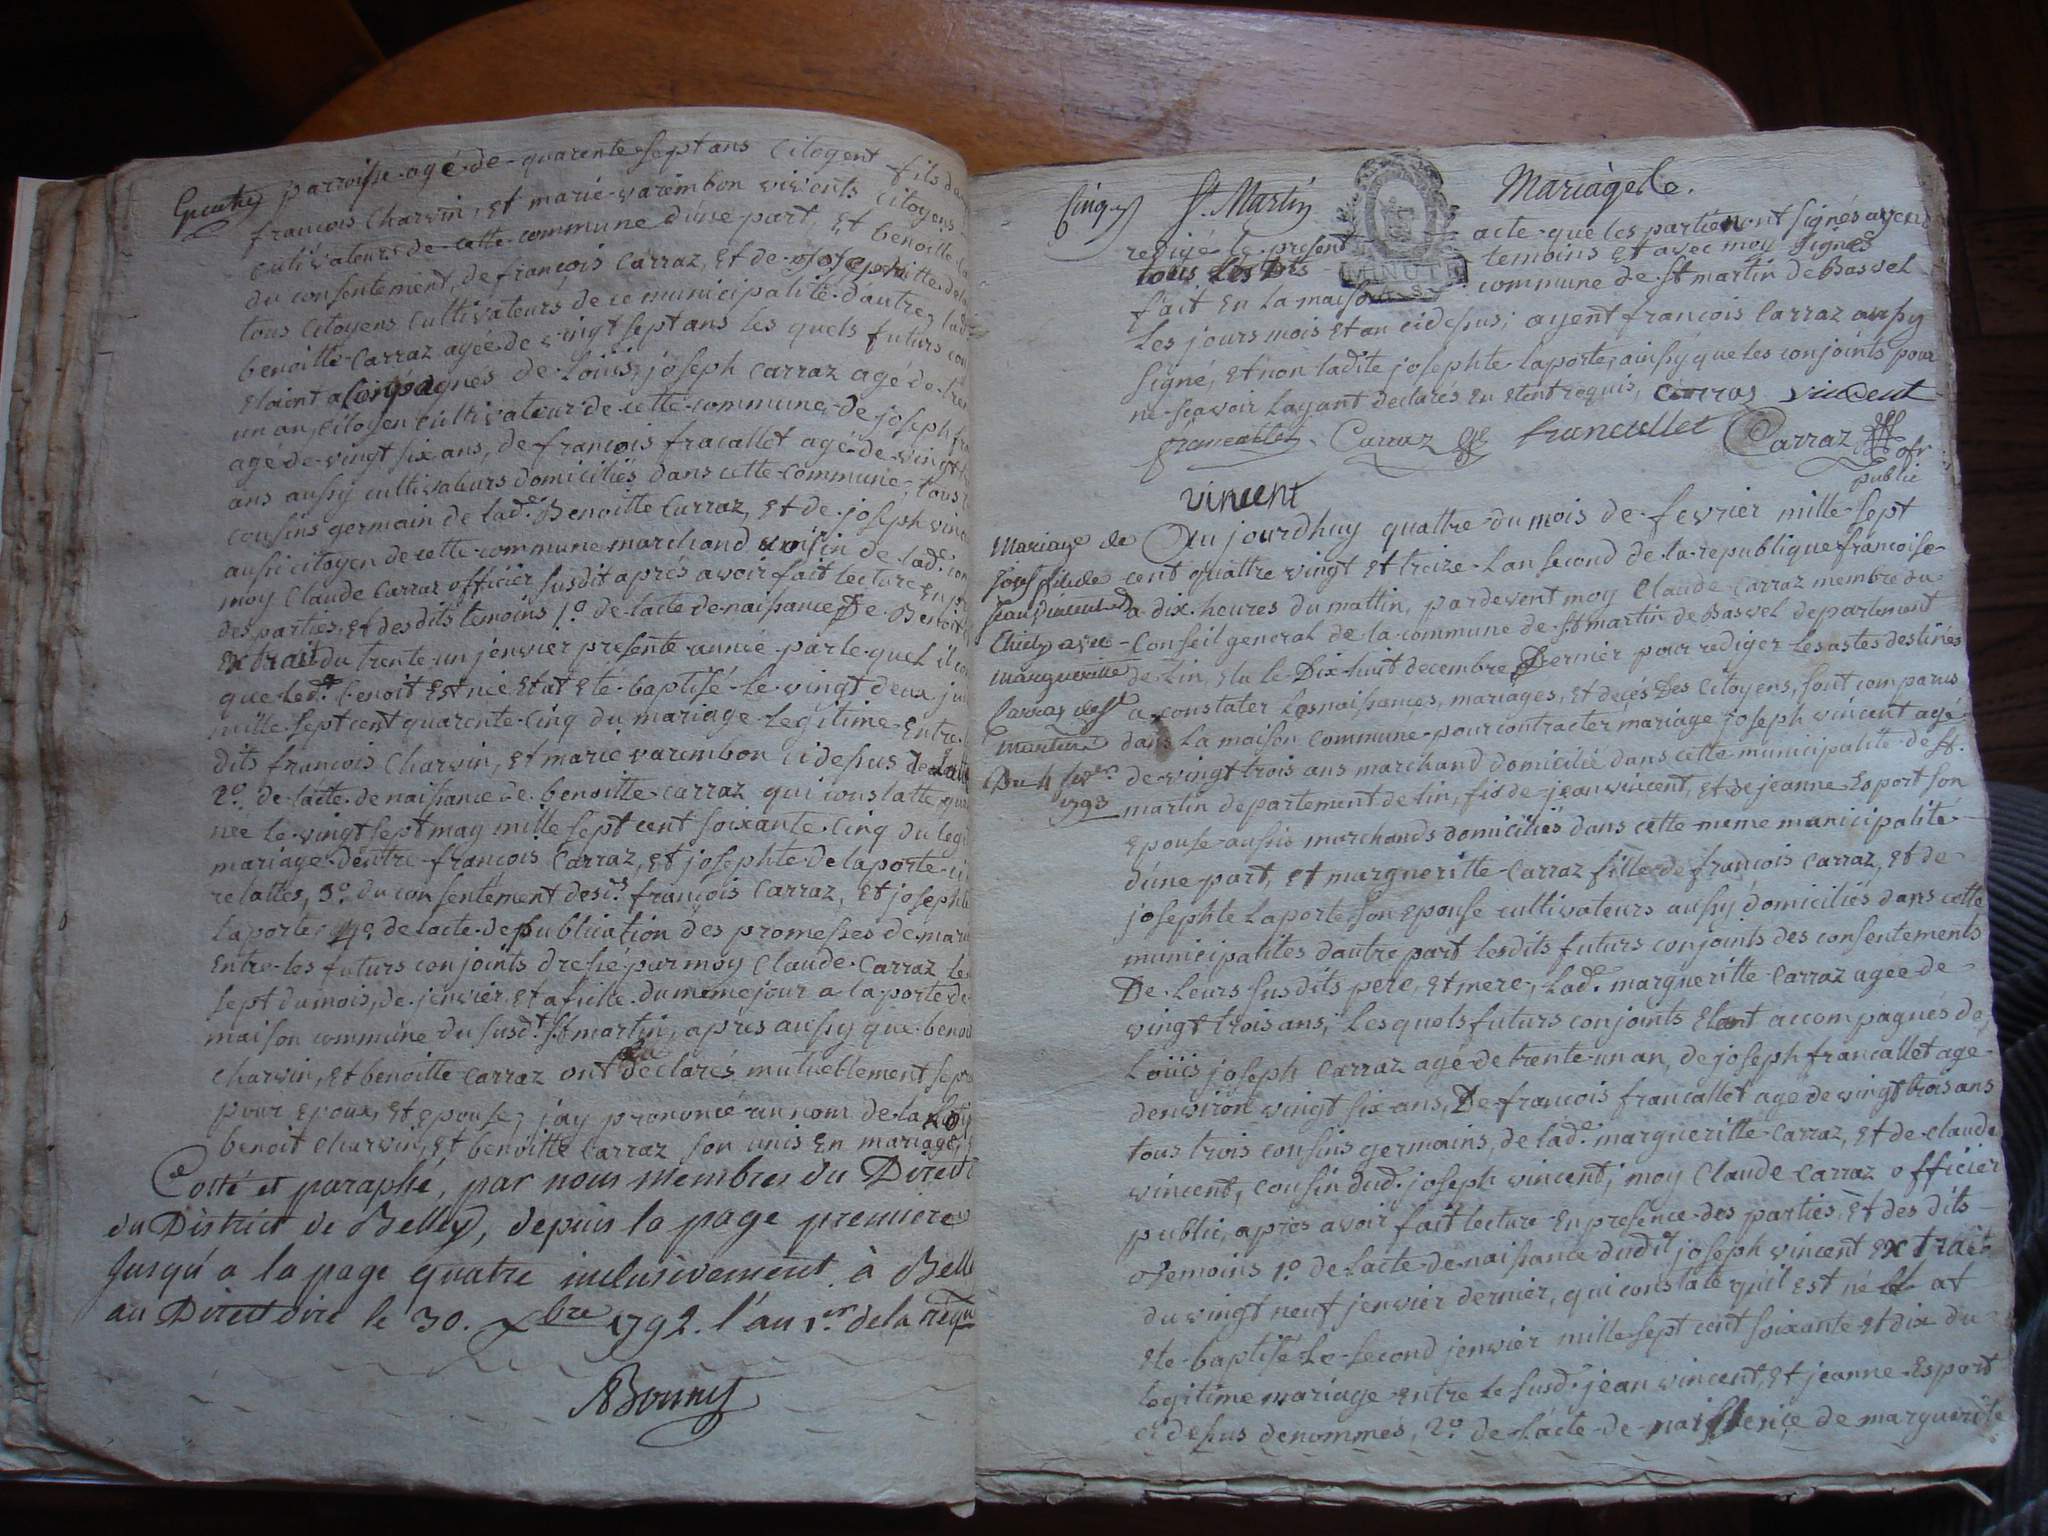 parroisse agé de quarente sept ans Citoyent fils de
francois Charvin, et marie varembon vivents Citoyens
cultivateurs de cette commune d'une part, et benoitte
du consentement, de françois Carraz, et de josephte de
tous Citoyens cultivateurs de ce municipalité d'autre, lad
benoitte Carraz agée de vingt sept ans les quels futurs con
etoint acompagnés de Louis joseph Carraz agé de tren
un an, Citoyen cultivateur de cette commune, de joseph fra
agé de vingt six ans, de francois fracallet agé de vingt
ans aussy cultivateurs domiciliés dans cette commune, tous
cousins germain de lad.e Benoitte Carraz, et de joseph vince
aussi citoyen de cette commune marchand voisin de lad.e
moy Claude Carraz officier susdit apres avoir fait lecture en pr
des parties, et des dits temoins 1.o de lacte de naissance de Benoit
extrait du trente un jenvier presente année par le quel il
que led.t benoit est née et at ete baptisé le vingt deux jui
mille sept cent quarente cinq du mariage legitime entre
dits francois Charvin, et marie varembon cidesus
2.o de lacte de naissance de benoitte carraz qui constatte
née le vingt sept may mille sept cent soixante cinq du legi
mariage dentre francois Carraz, et josephte de laporte
relattes, 3.o du consentement desd.s françois Carraz, et josephte
laporte, 4.o de lacte de publication des promesses de mari
entre les futurs conjoints dressé par moy Claude Carraz le
sept du mois, de jenvier et afiché du meme jour a la porte de
maison commune du susd.t St martin, apres aussy que benoit
charvin, et benoitte carraz ont declarés mutuellement se pr
pour epoux, et epouse, jay prononcé au nom de la loy
benoit charvin, et benoitte Carraz son unis en mariage,
Cotté et paraphé, par nous membres du Direct
du District de Belley, depuis la page premiere
jusqu'a la page quatre inclusivement. à Bell
au Directoire le 30. Xbre 1792. l'an 1.er de la repu
Cinq St. Martin Mariage
redigé le present acte que les parties ont signés
tous les temoins et avec moy signés
fait en la maison commune de St martin de Bavel
les jours mois et an cidesus; ayent francois Carraz aussy
signé, et non ladite josephte laporte, ainsy que les conjoints pour
ne scavoir layant declarés en etent requis, Carraz vincent
francallet Carraz francallet Carraz ofr
public
vincent
Mariage de
joseph fils de
jean vincent
avec
margueritte
Carraz de St
martin
Du 4 fev.er
1793
Aujourdhuy quattre du mois de fevrier mille sept
cent quattre vingt et treize lan second de la republique francoise
a dix heures du mattin, pardevent moy Claude Carraz membre du
Conseil general de la commune de St martin de Bavel departement
de lin, elu le Dix huit decembre Dernier pour rediger les actes destinés
a constater les naissances, mariages, et decés Des Citoyens, sont comparus
dans la maison commune pour contracter mariage joseph vincent agé
de vingt trois ans marchand domicilié dans cette municipalité de St.
martin departement de lin, fis de jean vincent, et de jeanne Esport son
epouse aussi marchands domiciliés dans cette meme municipalité
d'une part, et margueritte Carraz fille de francois Carraz, et de
josephte Laporte son Epouse cultivateurs aussy domiciliés dans cette
municipalités dautre part lesdits futurs conjoints des consentements
De leurs susdits pere, et mere, lad.e margueritte Carraz agée de
vingt trois ans; Lesquels futurs conjoints etent accompagnés de
Louis joseph Carraz agé de trente un an, de joseph francallet agé
denviron vingt six ans, De francois francallet agé de vingt trois ans
tous trois cousins germains, de lad.e margueritte Carraz, et de claude
vincent, cousin dud.t joseph vincent; moy Claude Carraz officier
public, apres avoir fait lecture en presence des parties, et des dits
temoins 1.o de lacte de naissance dudit joseph vincent extrait
du vingt neuf jenvier dernier, qui constate quil est né et at
ete baptisé le second jenvier mille sept cent soixante et dix du
legitime mariage entre le susd.t jean vincent, et jeanne Esport
cidesus denommés, 2.o de lacte de naissence de margueritte